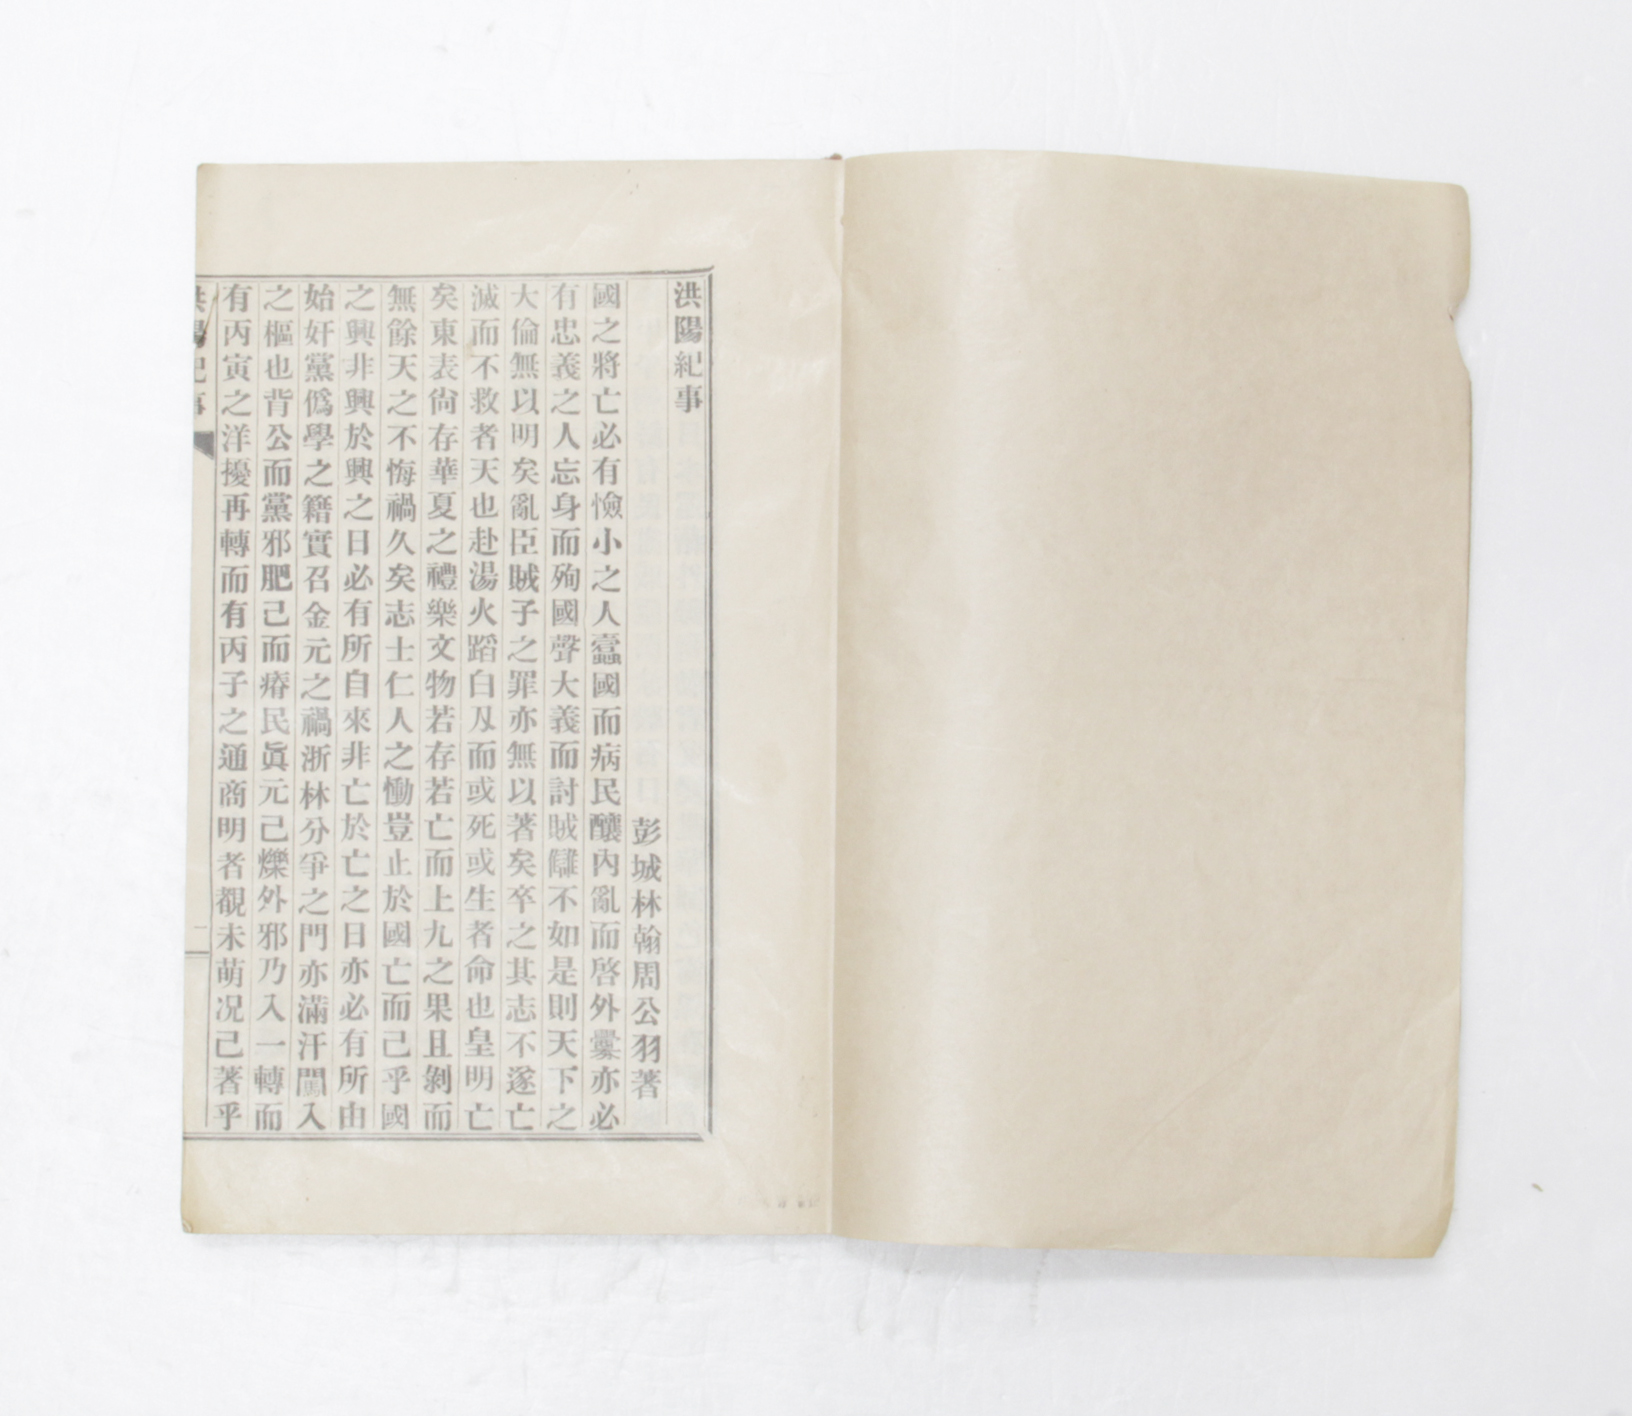 洪陽紀事
彭城林翰周公羽著
國之將亡必有憸小之人蠹國而病民釀內亂而啓外釁亦必
有忠義之人忘身而殉國聲大義而討賊讎不如是則天下之
大倫無以明矣亂臣賊子之罪亦無以著矣卒之其志不遂亡
滅而不救者天也赴湯火蹈白刃而或死或生者命也皇明亡
矣東表尙存華夏之禮樂文物若存若亡而上九之果且剝而
無餘天之不悔禍久矣志士仁人之慟豈止於國亡而己乎國
之興非興於興之日必有所自來非亡於亡之日亦必有所由
始奸黨僞學之籍實召金元之禍浙林分爭之門亦滿汗闖入
之樞也背公而黨邪肥己而瘠民眞元己爍外邪乃入一轉而
有丙寅之洋擾再轉而有丙子之通商明者覩未萌况己著乎
洪陽紀事
一